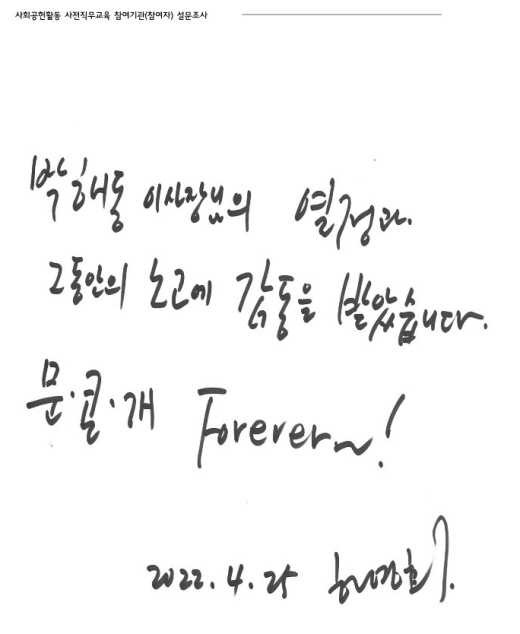 사회공헌활동 사전직무교육 참여기관(참여자) 설문조사
박해동 이사장님의 열정과
그동안의 노고에 감동을 받았습니다.
문·콜·개 Forever~!
2022. 4. 25